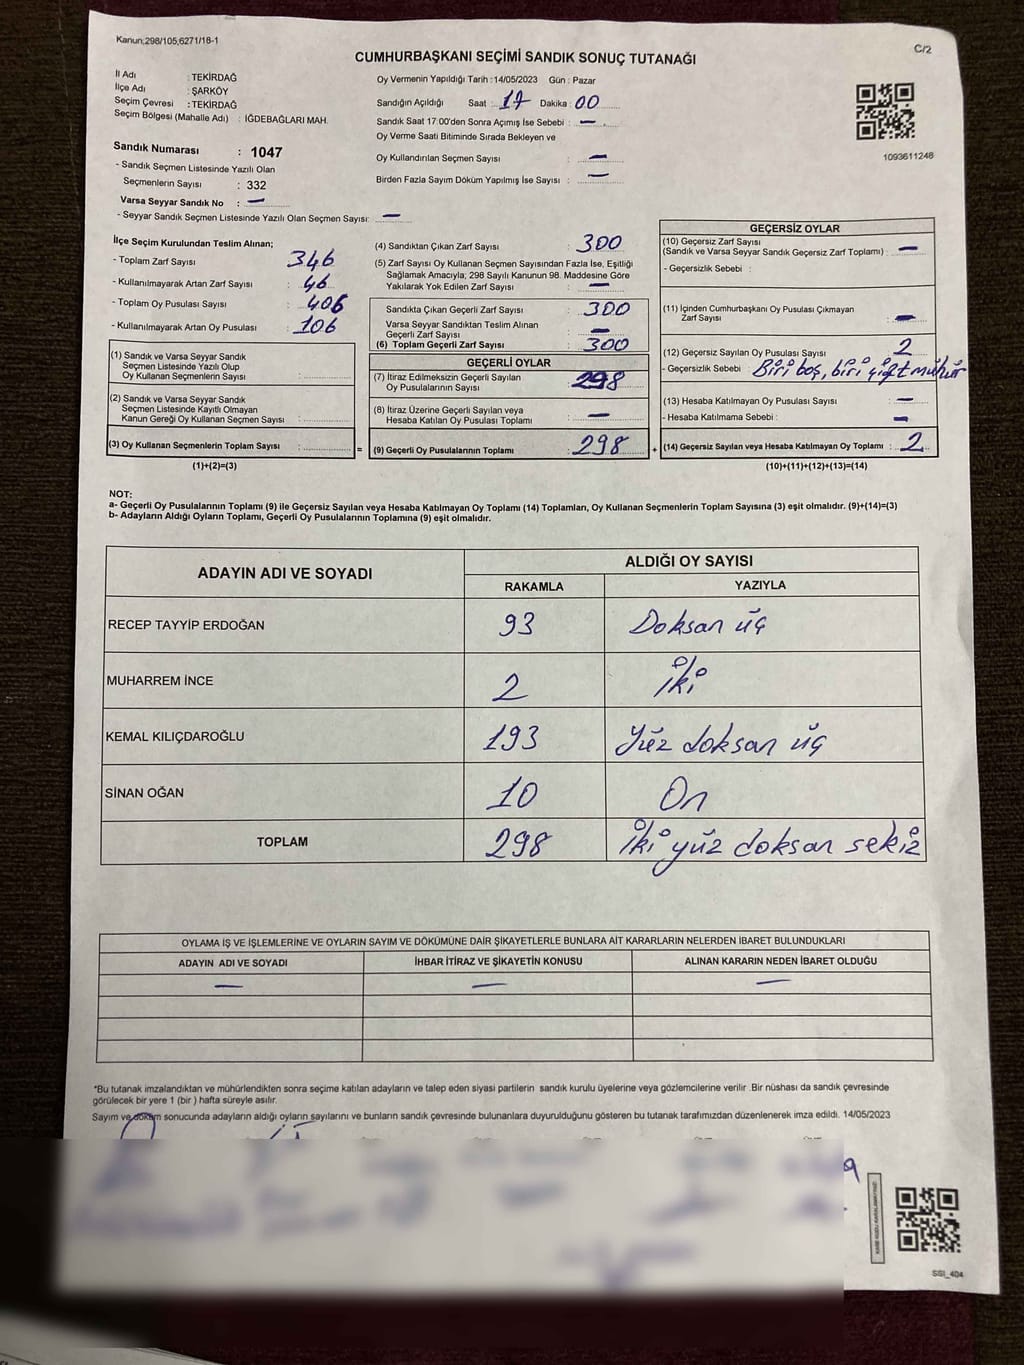 Kanun;298/105,6271/18-1
C/2
CUMHURBAŞKANI SEÇİMİ SANDIK SONUÇ TUTANAĞI
İl Adı : TEKİRDAĞ
İlçe Adı : ŞARKÖY
Seçim Çevresi : TEKİRDAĞ
Seçim Bölgesi (Mahalle Adı) : İĞDEBAĞLARI MAH.
Sandık Numarası : 1047
- Sandık Seçmen Listesinde Yazılı Olan
Seçmenlerin Sayısı : 332
Varsa Seyyar Sandık No : —
- Seyyar Sandık Seçmen Listesinde Yazılı Olan Seçmen Sayısı: —
Oy Vermenin Yapıldığı Tarih :14/05/2023 Gün : Pazar
Sandığın Açıldığı Saat : 17 Dakika : 00
Sandık Saat 17:00'den Sonra Açımış İse Sebebi : —
Oy Verme Saati Bitiminde Sırada Bekleyen ve
Oy Kullandırılan Seçmen Sayısı : —
Birden Fazla Sayım Döküm Yapılmış İse Sayısı : —
1093611248
İlçe Seçim Kurulundan Teslim Alınan;
- Toplam Zarf Sayısı : 346
- Kullanılmayarak Artan Zarf Sayısı : 46
- Toplam Oy Pusulası Sayısı : 406
- Kullanılmayarak Artan Oy Pusulası : 106
(1) Sandık ve Varsa Seyyar Sandık
Seçmen Listesinde Yazılı Olup
Oy Kullanan Seçmenlerin Sayısı :
(2) Sandık ve Varsa Seyyar Sandık
Seçmen Listesinde Kayıtlı Olmayan
Kanun Gereği Oy Kullanan Seçmen Sayısı :
(3) Oy Kullanan Seçmenlerin Toplam Sayısı :
(1)+(2)=(3)
(4) Sandıktan Çıkan Zarf Sayısı : 300
(5) Zarf Sayısı Oy Kullanan Seçmen Sayısından Fazla İse, Eşitliği
Sağlamak Amacıyla; 298 Sayılı Kanunun 98. Maddesine Göre
Yakılarak Yok Edilen Zarf Sayısı : —
Sandıkta Çıkan Geçerli Zarf Sayısı : 300
Varsa Seyyar Sandıktan Teslim Alınan
Geçerli Zarf Sayısı : —
(6) Toplam Geçerli Zarf Sayısı : 300
GEÇERLİ OYLAR
(7) İtiraz Edilmeksizin Geçerli Sayılan
Oy Pusulalarının Sayısı : 298
(8) İtiraz Üzerine Geçerli Sayılan veya
Hesaba Katılan Oy Pusulası Toplamı : —
= (9) Geçerli Oy Pusulalarının Toplamı : 298 +
GEÇERSİZ OYLAR
(10) Geçersiz Zarf Sayısı
(Sandık ve Varsa Seyyar Sandık Geçersiz Zarf Toplamı) : —
- Geçersizlik Sebebi :
(11) İçinden Cumhurbaşkanı Oy Pusulası Çıkmayan
Zarf Sayısı : —
(12) Geçersiz Sayılan Oy Pusulası Sayısı : 2
- Geçersizlik Sebebi : Biri boş, biri çift mühür
(13) Hesaba Katılmayan Oy Pusulası Sayısı : —
- Hesaba Katılmama Sebebi : —
(14) Geçersiz Sayılan veya Hesaba Katılmayan Oy Toplamı : 2
(10)+(11)+(12)+(13)=(14)
NOT:
a- Geçerli Oy Pusulalarının Toplamı (9) ile Geçersiz Sayılan veya Hesaba Katılmayan Oy Toplamı (14) Toplamları, Oy Kullanan Seçmenlerin Toplam Sayısına (3) eşit olmalıdır. (9)+(14)=(3)
b- Adayların Aldığı Oyların Toplamı, Geçerli Oy Pusulalarının Toplamına (9) eşit olmalıdır.
ADAYIN ADI VE SOYADI ALDIĞI OY SAYISI
RAKAMLA YAZIYLA
RECEP TAYYİP ERDOĞAN 93 Doksan üç
MUHARREM İNCE 2 İki
KEMAL KILIÇDAROĞLU 193 Yüz doksan üç
SİNAN OĞAN 10 On
TOPLAM 298 İki yüz doksan sekiz
OYLAMA İŞ VE İŞLEMLERİNE VE OYLARIN SAYIM VE DÖKÜMÜNE DAİR ŞİKAYETLERLE BUNLARA AİT KARARLARIN NELERDEN İBARET BULUNDUKLARI
ADAYIN ADI VE SOYADI İHBAR İTİRAZ VE ŞİKAYETİN KONUSU ALINAN KARARIN NEDEN İBARET OLDUĞU
— — —
*Bu tutanak imzalandıktan ve mühürlendikten sonra seçime katılan adayların ve talep eden siyasi partilerin sandık kurulu üyelerine veya gözlemcilerine verilir .Bir nüshası da sandık çevresinde
görülecek bir yere 1 (bir ) hafta süreyle asılır.
Sayım ve döküm sonucunda adayların aldığı oyların sayılarını ve bunların sandık çevresinde bulunanlara duyurulduğunu gösteren bu tutanak tarafımızdan düzenlenerek imza edildi. 14/05/2023
SSI_404